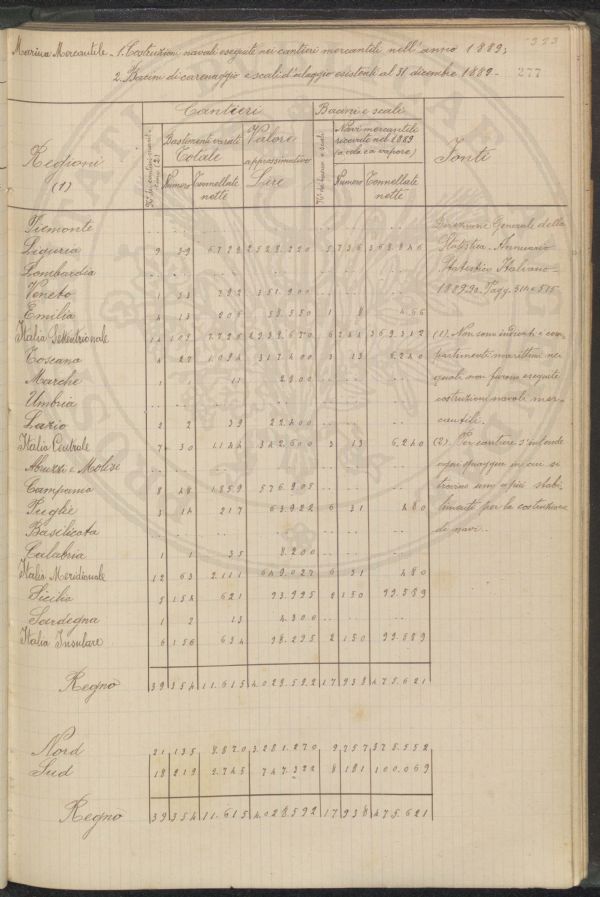 323
Marina Mercantile - 1. Costruzioni navali eseguite nei cantieri mercantili nell'anno 1889;
2. Bacini di carenaggio e scali d'alaggio esistenti al 31 dicembre 1889 - 277
Regioni (1) Cantieri Bacini e scali Fonti
Bastimenti varati Totale Valore approssimativo Lire Navi mercantili ricevute nel 1889 (a vela e a vapore)
Numero Tonnellate nette Numero Tonnellate nette
Piemonte .. .. .. .. .. .. ..
Liguria 9 39 6.729 2.528.220 5 736 368.846
Lombardia .. .. .. .. .. .. ..
Veneto 1 53 792 351.900 .. .. ..
Emilia 4 13 205 58.550 1 8 466
Italia Settentrionale 14 105 7.726 2.938.670 6 744 369.312
Toscana 4 27 1.094 317.400 3 13 6.240
Marche 1 1 11 2.800 .. .. ..
Umbria .. .. .. .. .. .. ..
Lazio 2 2 39 22.400 .. .. ..
Italia Centrale 7 30 1.144 342.600 3 13 6.240
Abruzzi e Molise .. .. .. .. .. .. ..
Campania 8 48 1.859 576.905 .. .. ..
Puglie 3 14 217 63.922 6 31 480
Basilicata .. .. .. .. .. .. ..
Calabria 1 1 35 8.200 .. .. ..
Italia Meridionale 12 63 2.111 649.027 6 31 480
Sicilia 5 154 621 93.995 2 150 99.589
Sardegna 1 2 13 4.300 .. .. ..
Italia Insulare 6 156 634 98.295 2 150 99.589
Regno 39 354 11.615 4.028.592 17 938 475.621
Nord 21 135 8.870 3.281.270 9 757 375.552
Sud 18 219 2.745 747.322 8 181 100.069
Regno 39 354 11.615 4.028.592 17 938 475.621
Direzione Generale della
Statistica - Annuario
Statistico Italiano -
1889-90. Pagg. 514 e 515
(1). Non sono indicati i com-
partimenti marittimi nei
quali non furono eseguite
costruzioni navali mer-
cantili.
(2). Per cantiere s'intende
ogni spiaggia in cui si
trovino uno o più stabi-
limenti per la costruzione
di navi.